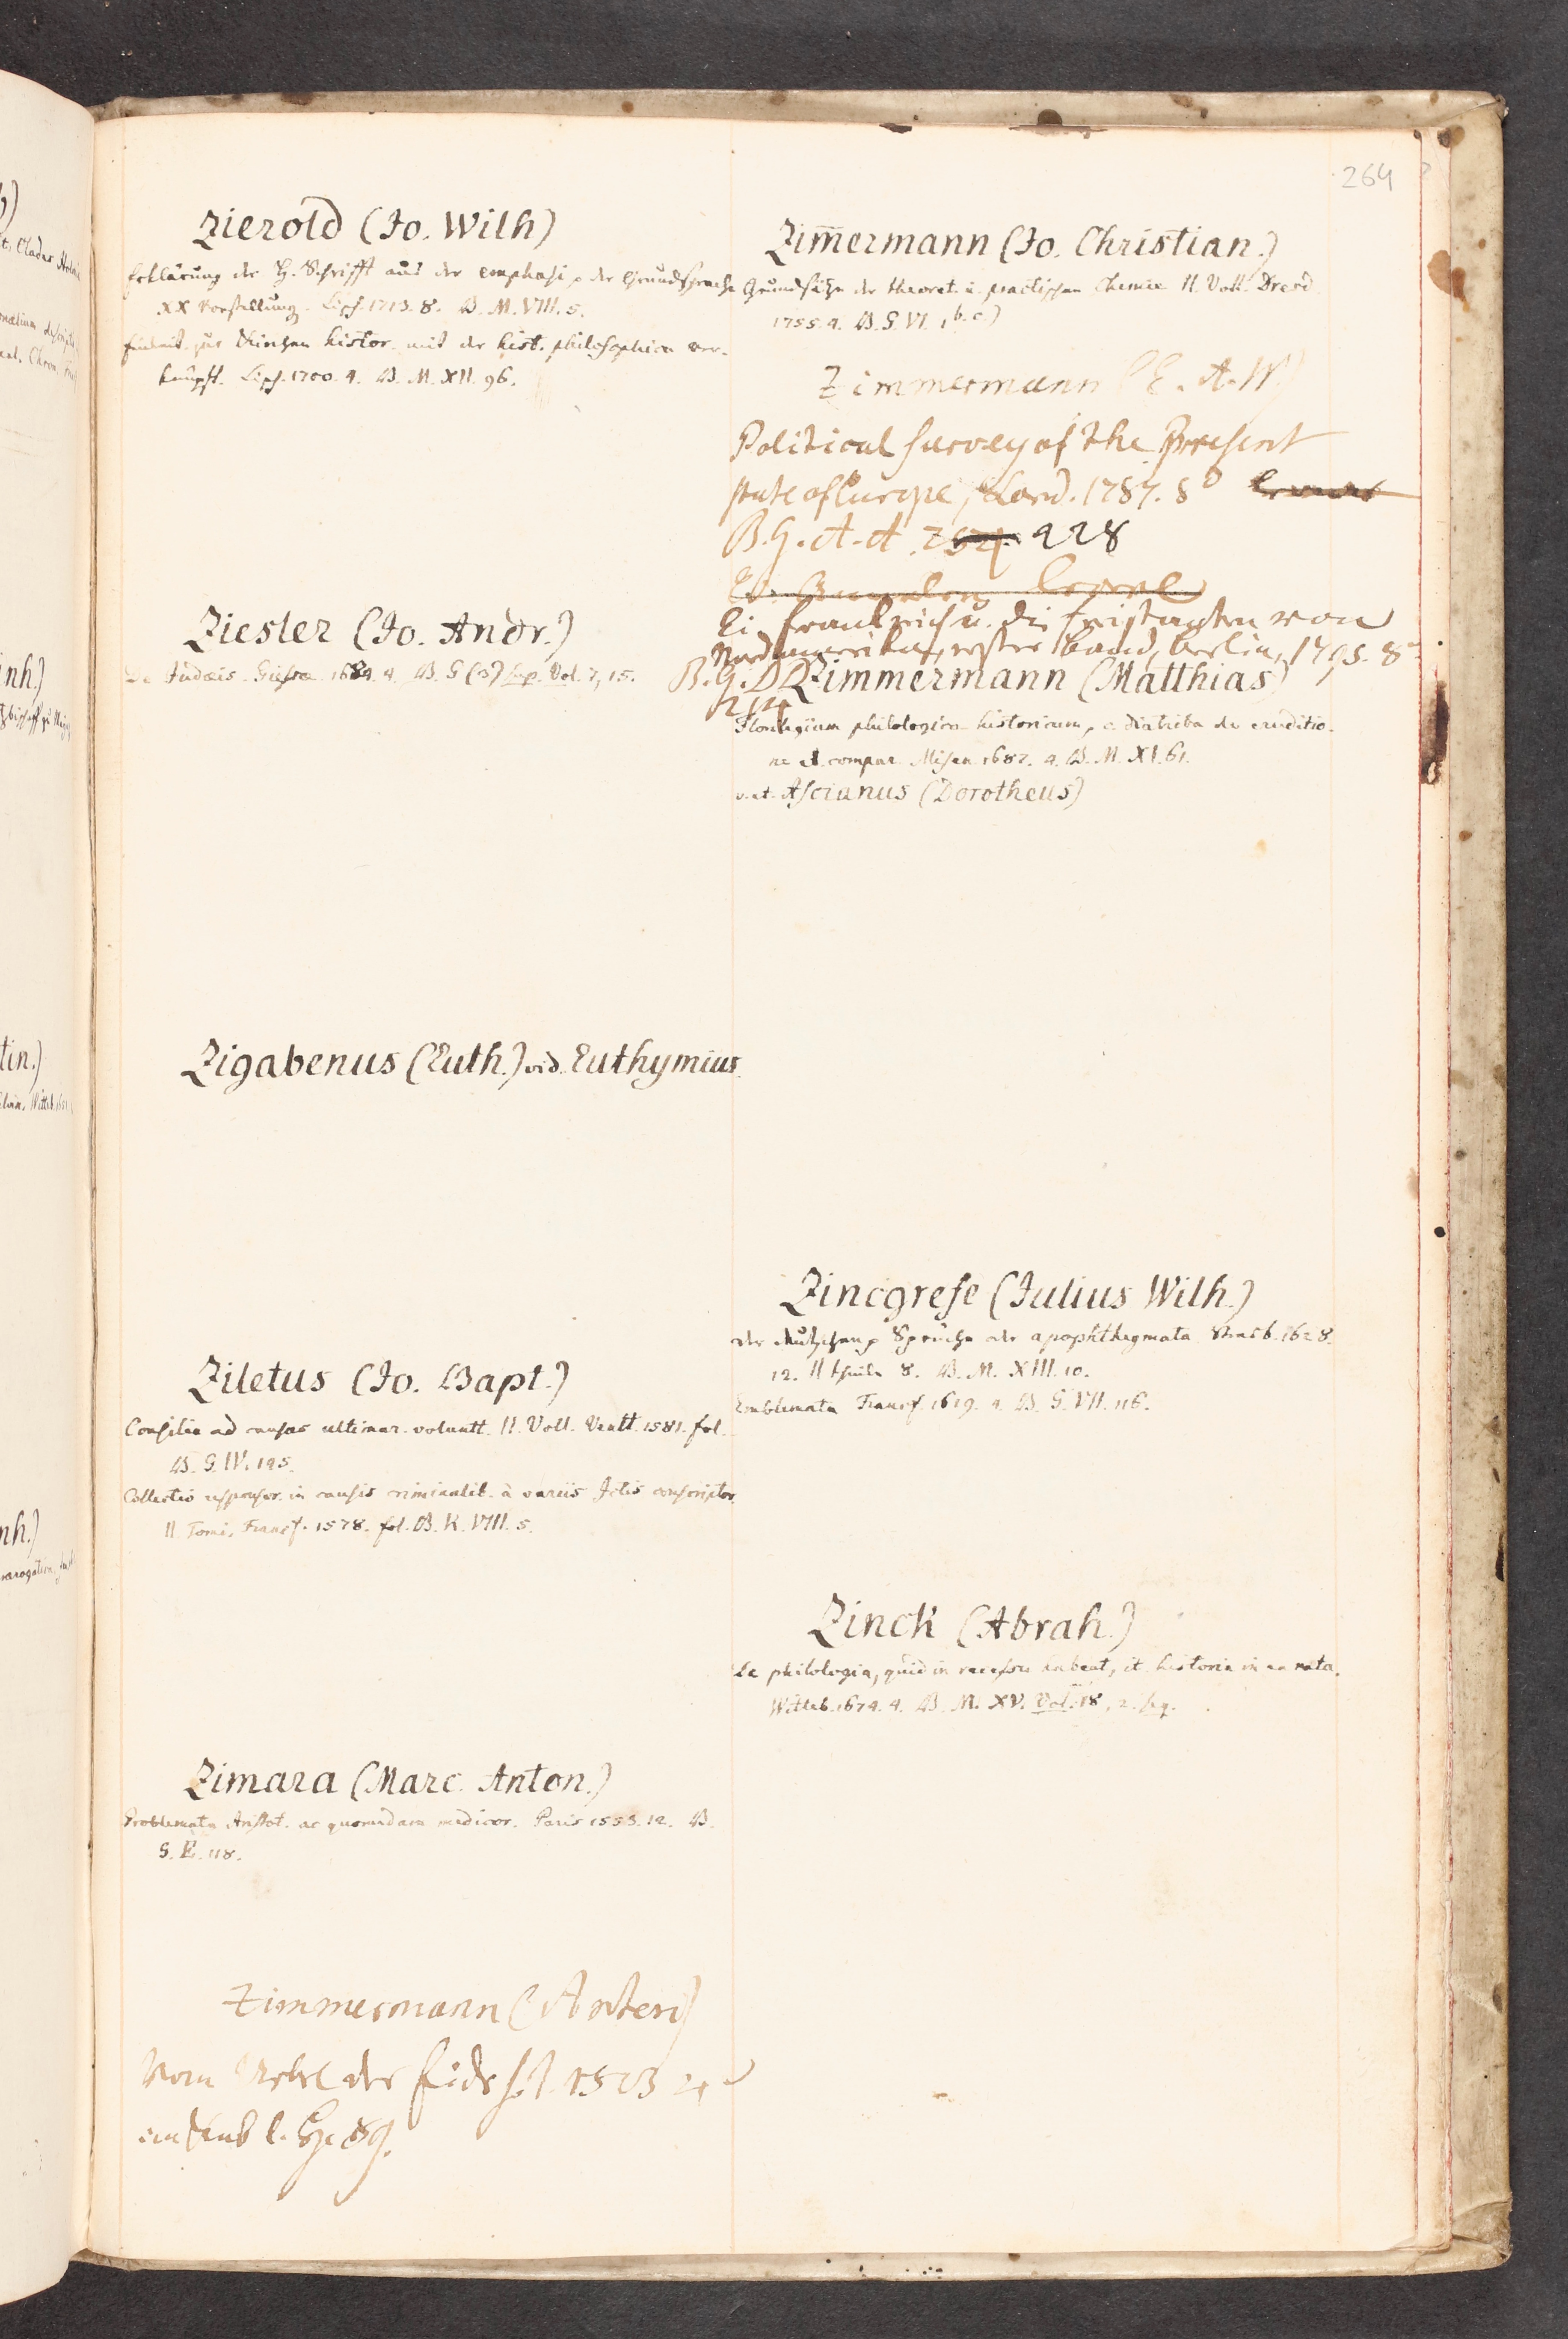 264
Zierold (Jo. Wilh)
Erklärung der H. Schrifft aus der emphasi der Grundsprache
XX Vorstellung. Lips. 1713. 8. B. M. VIII. 5.
Einleit. zur Kirchen histor. mit der hist. philosophica ver-
knüpft. Lips. 1700. 4. B. M. XII. 96.
Ziesler (Jo. Andr.)
De Judæis. Giessæ 1684. 4. B. G (3) sup. Vol. 7, 15.
Zigabenus (Euth.) vid. Euthymius
Ziletus (Jo. Bapt.)
Consilia ad causas ultimar. voluntt. II. Voll. Venett. 1581. fol.
B. G. IV. 195.
Collectio responsor. in causis criminalib. à variis Jctis conscriptor.
II Tomi. Francf. 1578. fol. B. K. VIII. 5.
Zimara (Marc. Anton.)
Problemata Aristot. ac quorundam medicor. Paris 1553. 12. B.
G. E. 118.
Zimmermann (Anton)
Vom der 4
89.
Zim̄ermann (Jo. Christian.)
Grundsätze der theoret. u. practischen Chemie II. Voll. Dresd.
1755. 4. B. G. VI. 1 b. c)
Zimmermann (E. A. W)
Political survey of the Present
state of Europe, Lond. 1787. 8°
B. G. A. A. 228
Ei. Frankreich u. die Freistaaten von
Nordamerika, erster Band, Berlin, 1795. 8°
B. G. D D
214
Zimmermann (Matthias)
Florilegium philologico-historicum, c. diatriba de eruditio-
ne el. compar. Misen. 1687. 4. B. M. XI. 61.
v. et. Ascianus (Dorotheus)
Zincgrefe (Julius Wilh.)
der deutschen Sprüche oder apophthegmata Strasb. 1628.
12. II theile 8. B. M. XIII. 10.
Emblemata Francf. 1619. 4. B. G. VII. 116.
Zinck (Abrah.)
De philologia, quid in recessu habeat, it. historia in ea nata.
Witteb. 1674. 4. B. M. XV. Vol. 18, 2. seq.